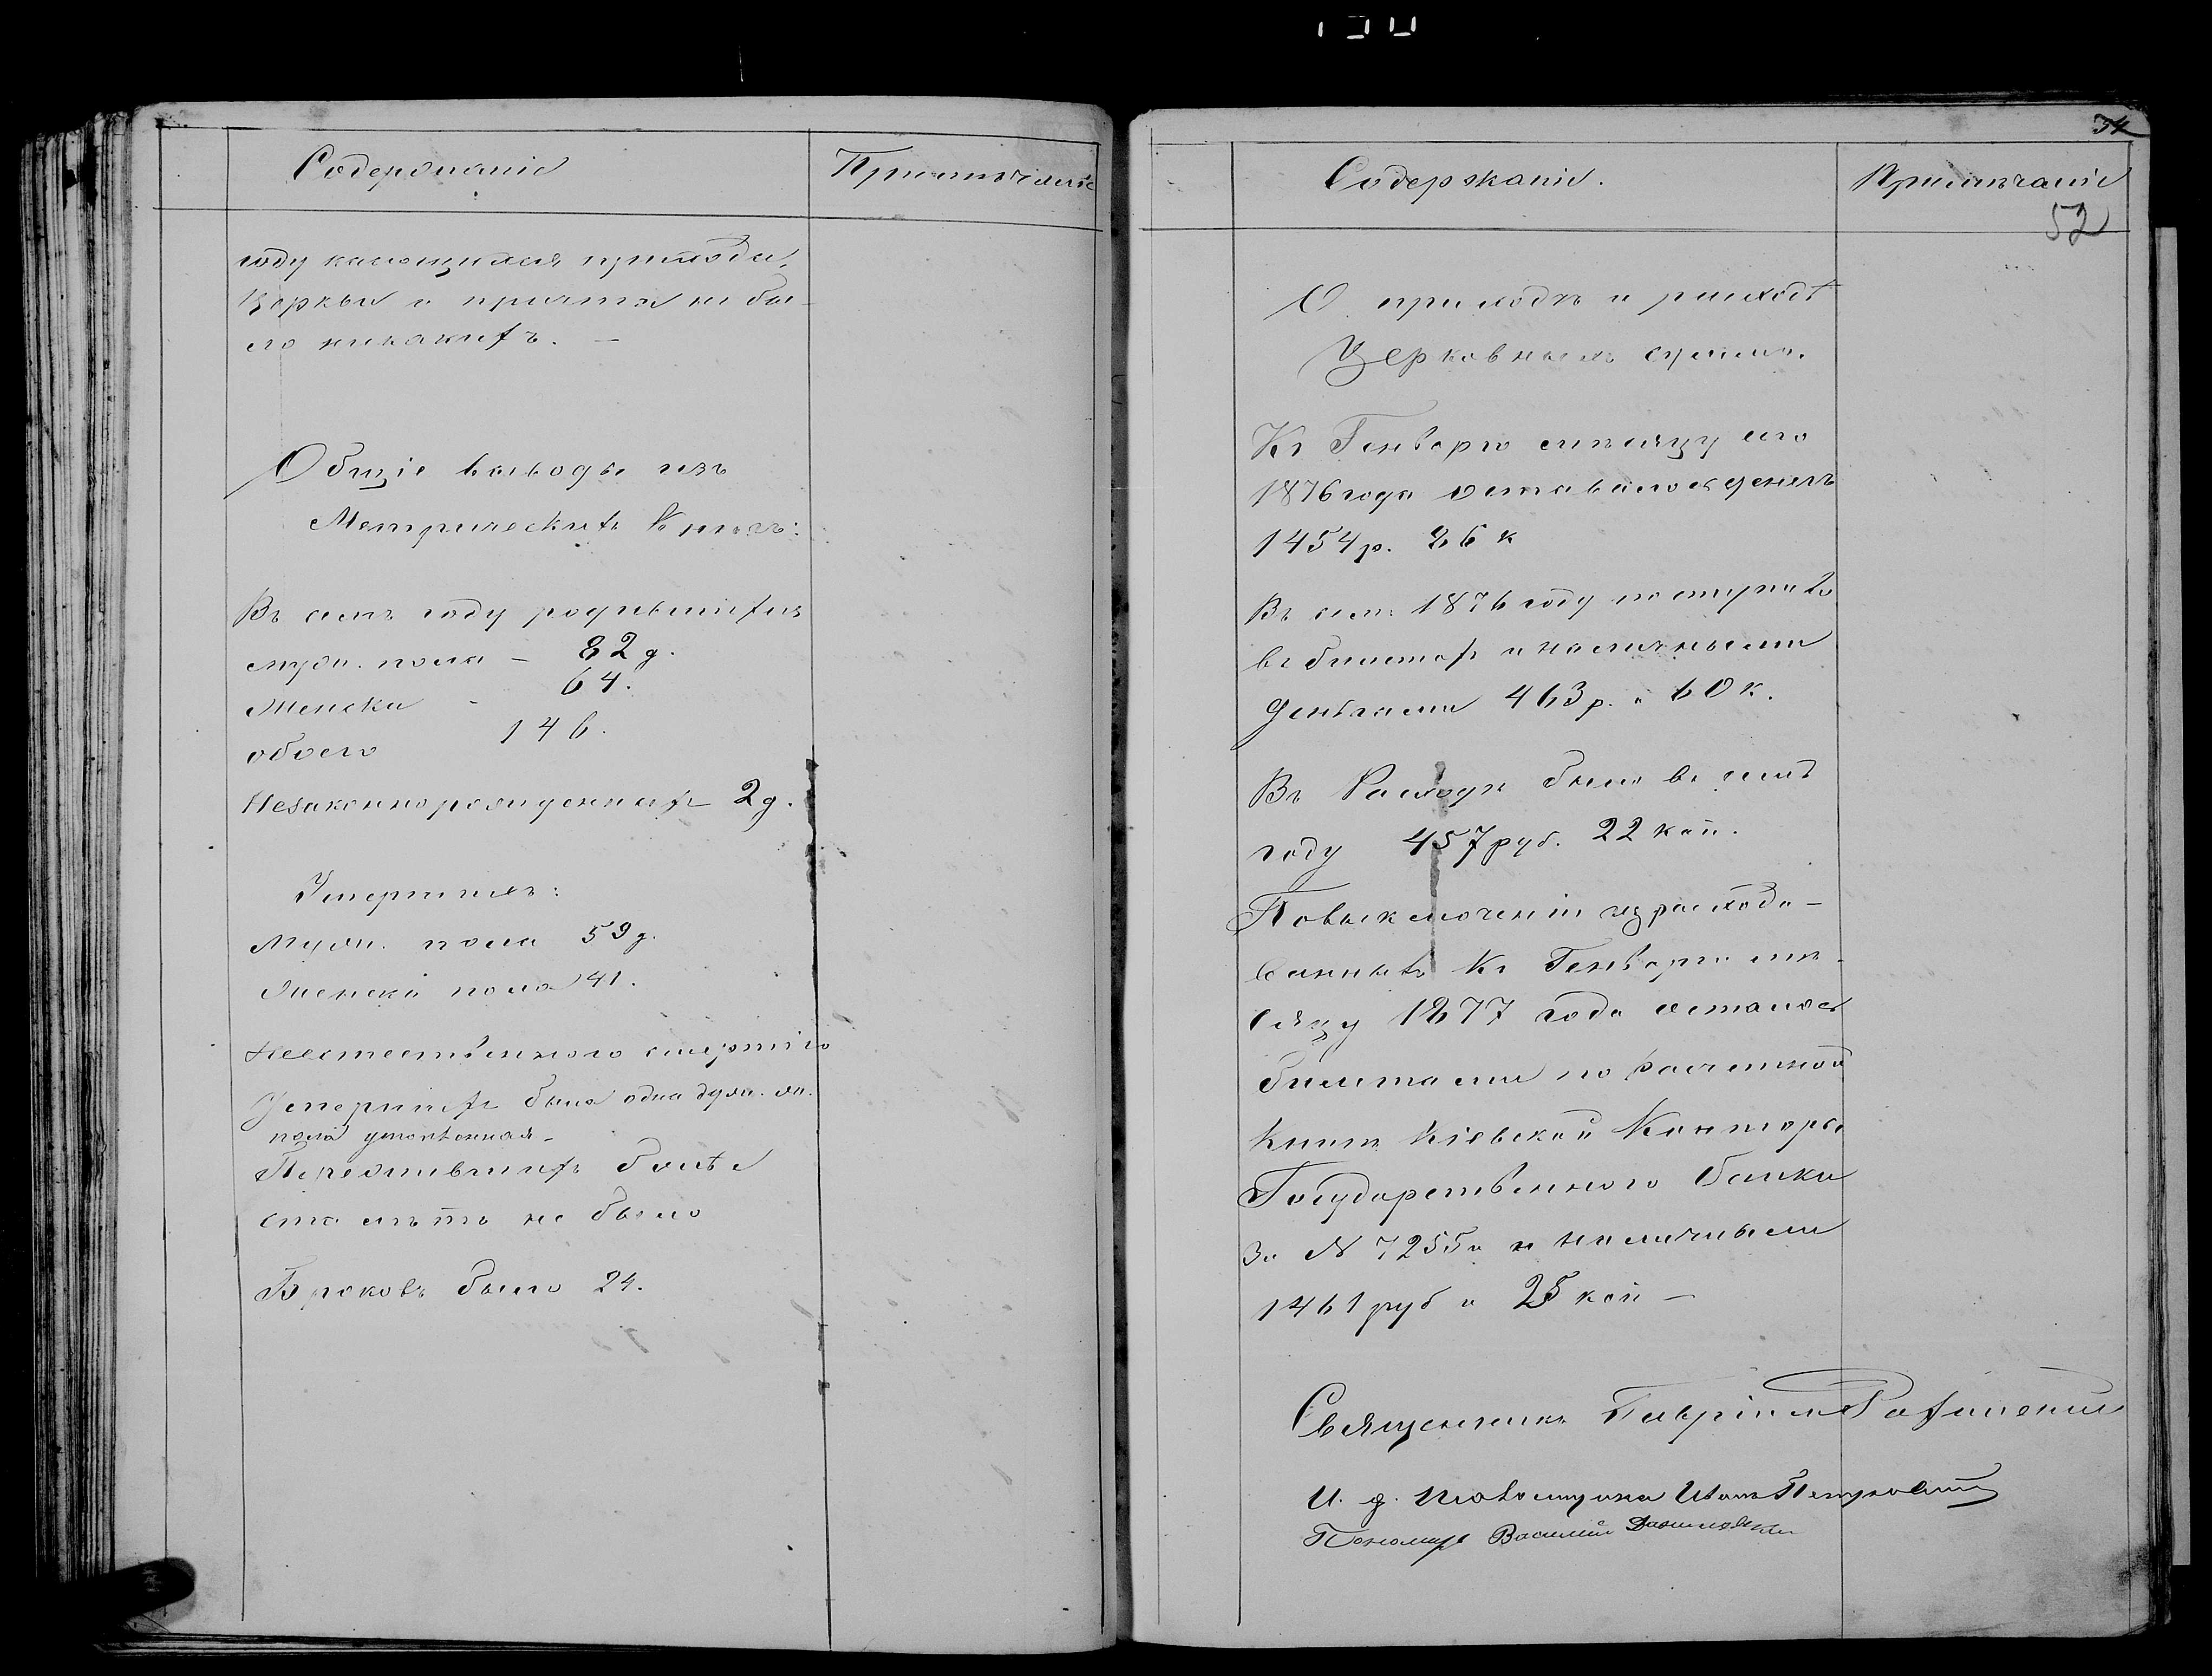 Содержаніе
Примѣчаніе
году касающихся прихода,
Церкви и причта не бы-
ло никакихъ. —
Общіе выводы изъ
Метрическихъ Книгъ:
Въ семъ году родившихся
муж. пола — 82 д.
Женска - 64.
обоего 146.
Незаконнорожденныхъ 2 д.
Умершихъ:
Муж. пола 59 д.
Женска пола 41.
Неестественною смертію
Умершихъ была одна душа. м.
пола утопленная -
Пережившихъ болѣе
ста лѣтъ не было
Браковъ было 24.
54
Содержаніе.
Примѣчаніе
52
О приходѣ и расходѣ
Церковныхъ суммъ.
Къ Генварю мѣсяцу сего
1876 года оставалось денегъ
1454 р. 86 к
Въ семъ 1876 году поступило
въ билетахъ и наличными
деньгами 463 р. и 60 к.
Въ Расходѣ было въ семъ
году 457 руб. 22 коп.
По выключеніи израсходо-
ванныхъ Къ Генварю мѣ-
сяцу 1877 года осталось
билетами по Расчетной
Книгѣ Кіевской Конторы
Государственного Банка
За № 7255м и наличными
1461 руб и 25 коп —
Священникъ Гавріилъ
И. д. Псаломщика Иванъ Петровскій
Пономарь Василій